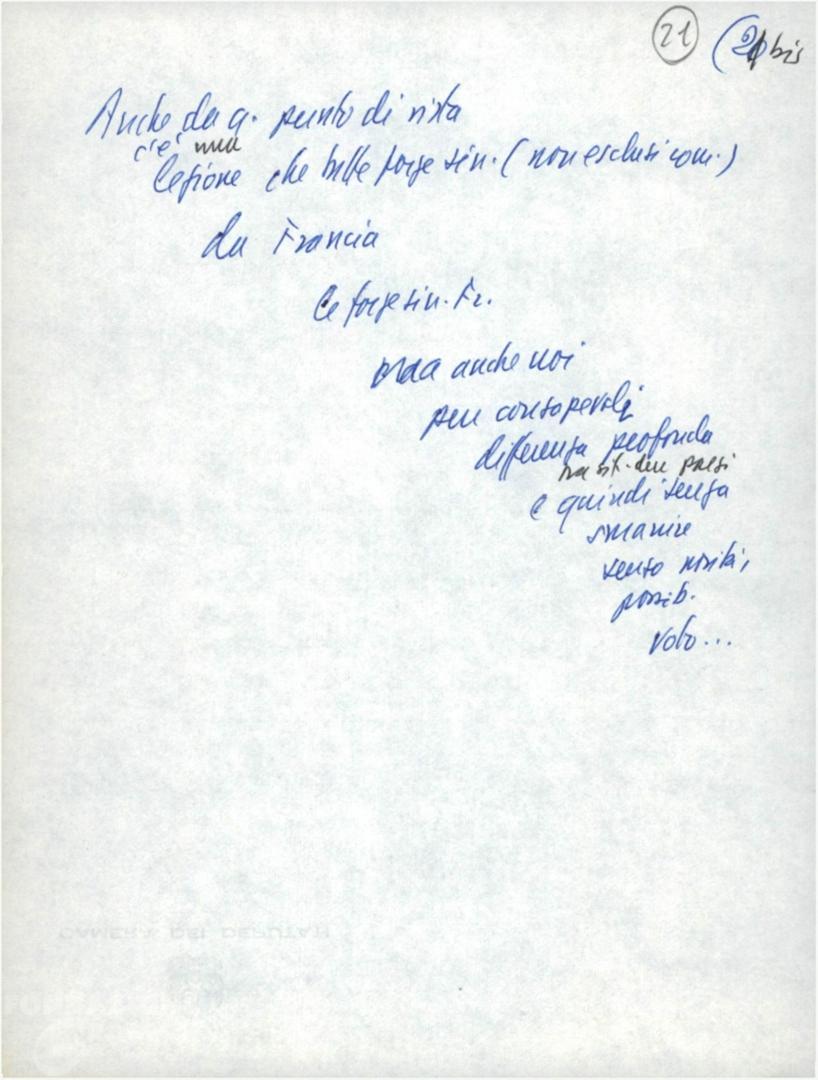 21 (21 bis
Anche da q. punto di vista
c'è una
lezione che tutte forze sin. (non esclusi com.)
da Francia
le forze sin. Fr.
ma anche noi
pur consapevoli
differenza profonda
tra sit. due paesi
e quindi senza
smanie
senso novità,
possib.
voto...
CAMERA DEI DEPUTATI